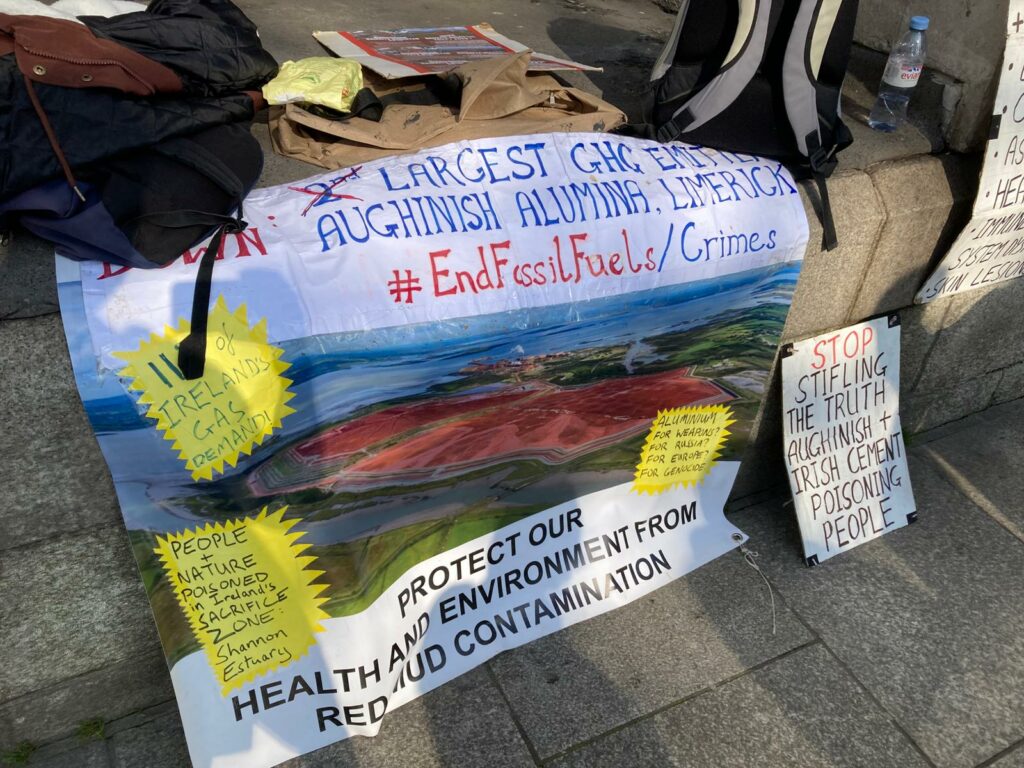 2nd LARGEST GHG EMITTER
DOWN: AUGHINISH ALUMINA, LIMERICK
#EndFossilFuels/Crimes
11% of
IRELAND'S
GAS
DEMAND!
ALUMINIUM
FOR WEAPONS?
FOR RUSSIA?
FOR EUROPE?
FOR GENOCIDE
PEOPLE
+
NATURE
POISONED
in Ireland's
SACRIFICE
ZONE:
Shannon
Estuary
PROTECT OUR
HEALTH AND ENVIRONMENT FROM
RED MUD CONTAMINATION
STOP
STIFLING
THE TRUTH
AUGHINISH +
IRISH CEMENT
POISONING
PEOPLE
evian
IMMUNE
SYSTEM
• SKIN LESIONS